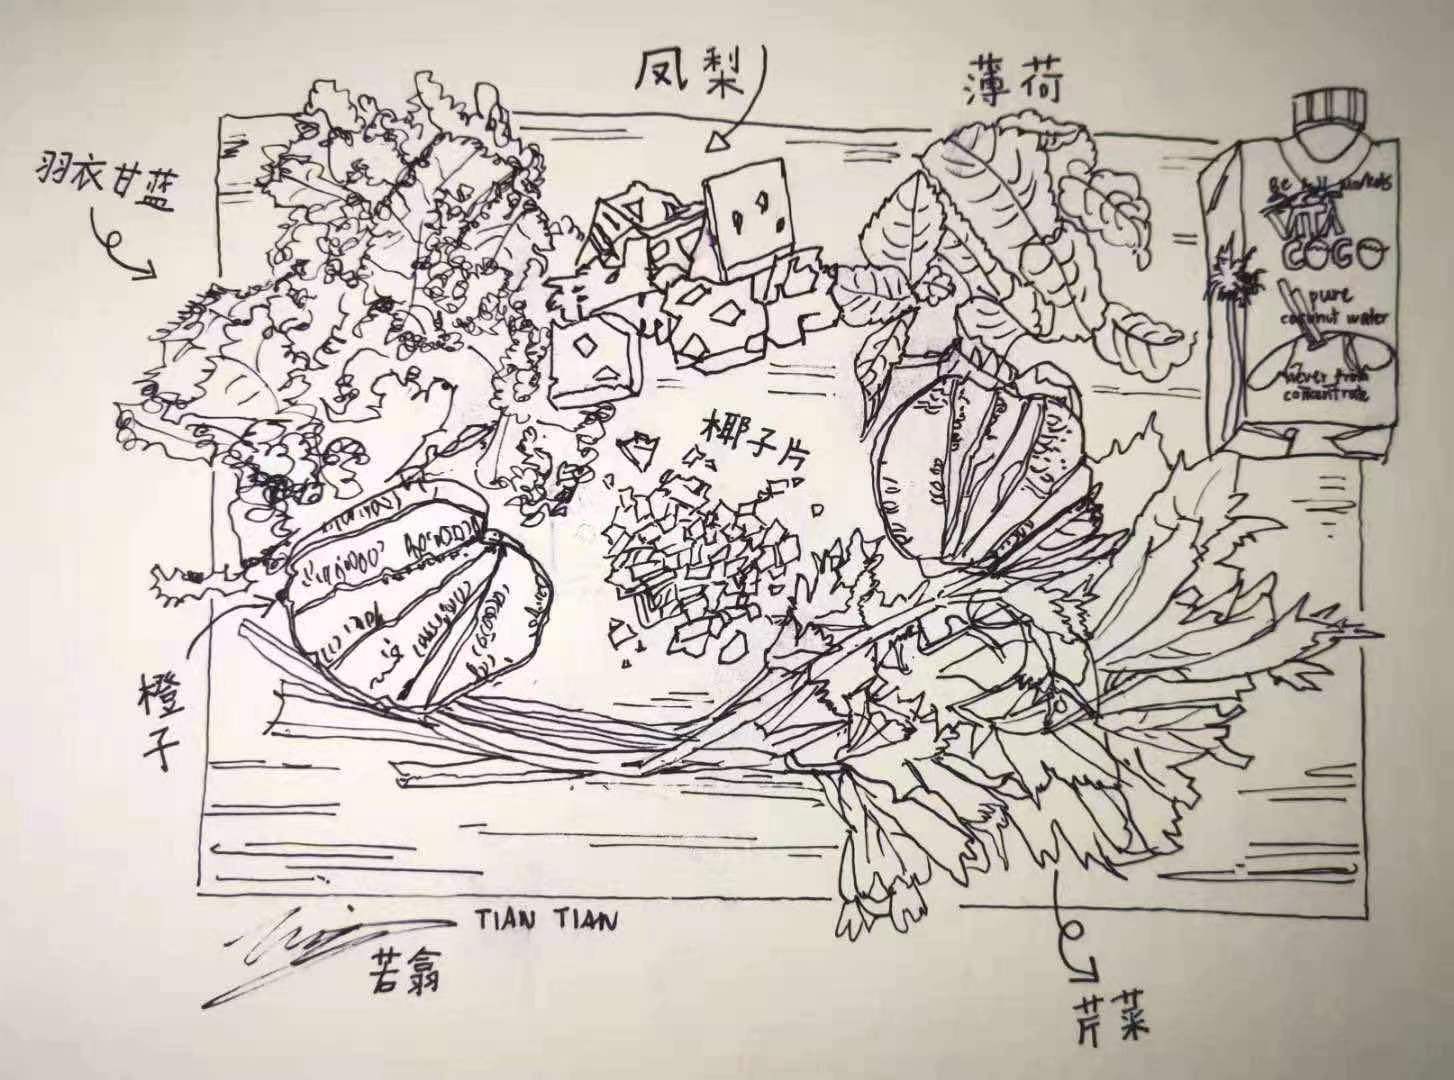 凤梨
薄荷
羽衣甘蓝
VITA
COCO
pure
coconut water
never from
concentrate
椰子片
橙子
TIAN TIAN
若翕
芹菜